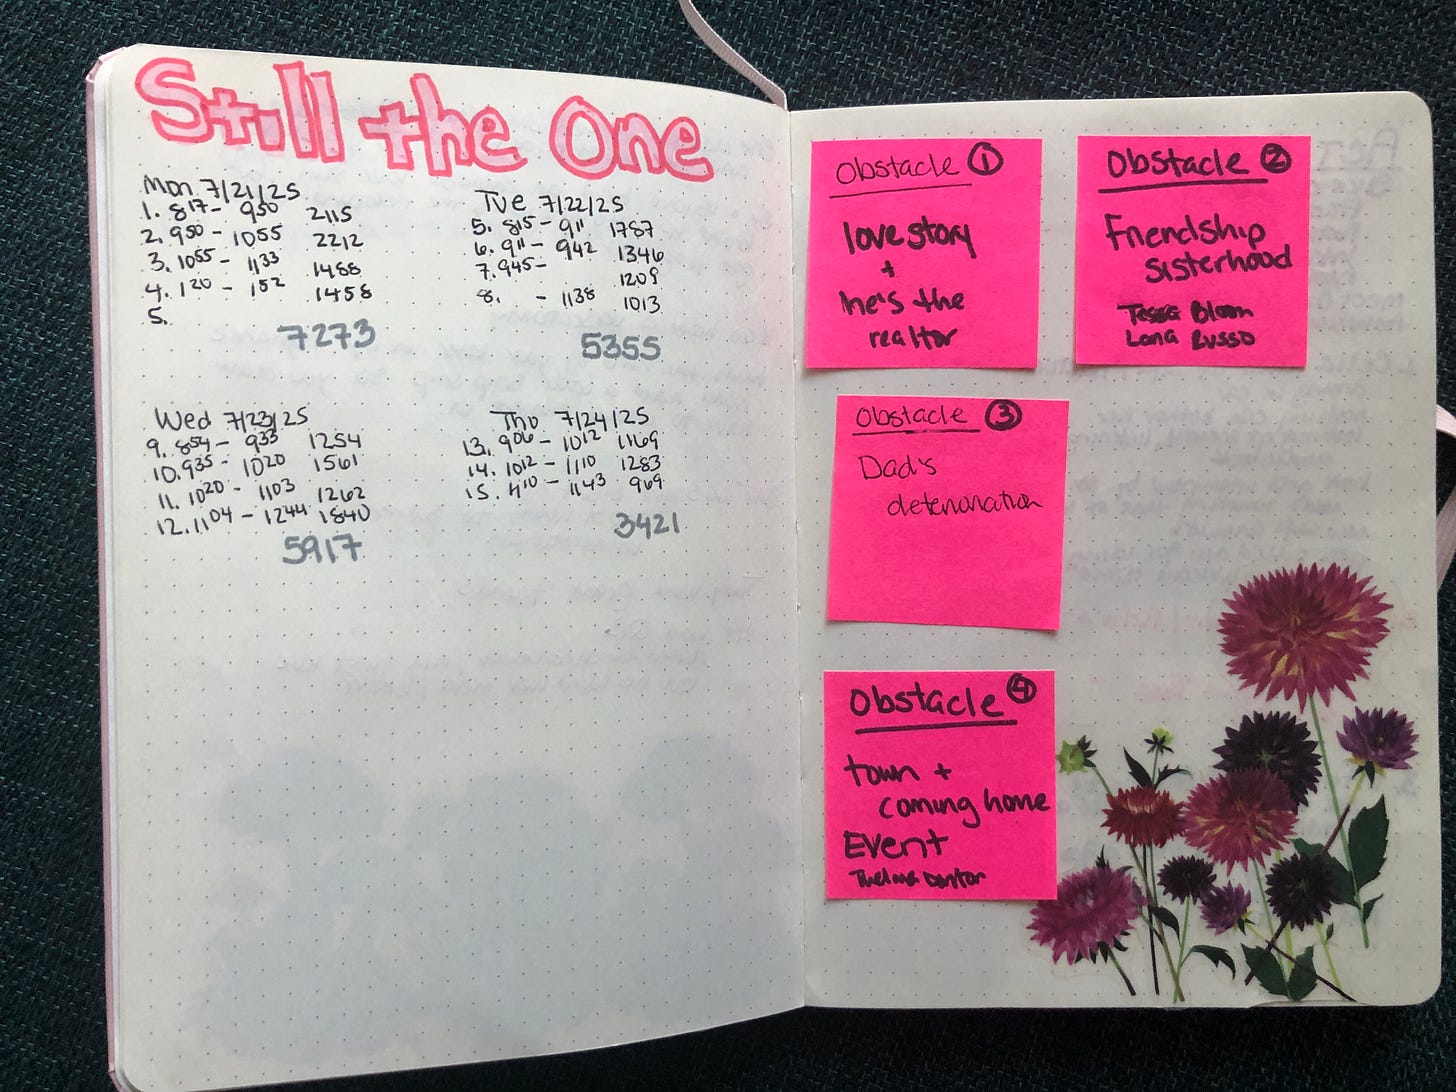 Still the One
Mon 7/21/25
1. 8¹⁷ - 9⁵⁰ 2115
2. 9⁵⁰ - 10⁵⁵ 2212
3. 10⁵⁵ - 11³³ 1488
4. 1²⁰ - 1⁵² 1458
5.
7273
Tue 7/22/25
5. 8¹⁵ - 9¹¹ 1787
6. 9¹¹ - 9⁴² 1346
7. 9⁴⁵ - 1209
8. - 11³⁸ 1013
5355
Wed 7/23/25
9. 8⁵⁴ - 9³³ 1254
10. 9³⁵ - 10²⁰ 1561
11. 10²⁰ - 11⁰³ 1262
12. 11⁰⁴ - 12⁴⁴ 1840
5917
Thu 7/24/25
13. 9⁰⁶ - 10¹² 1169
14. 10¹² - 11¹⁰ 1283
15. - 11⁴³ 969
3421
Obstacle ①
love story
+
he's the
realtor
Obstacle ②
Friendship
sisterhood
Tessa Bloom
Lana Russo
Obstacle ③
Dad's
deterioration
Obstacle ④
town +
coming home
Event
Thelma